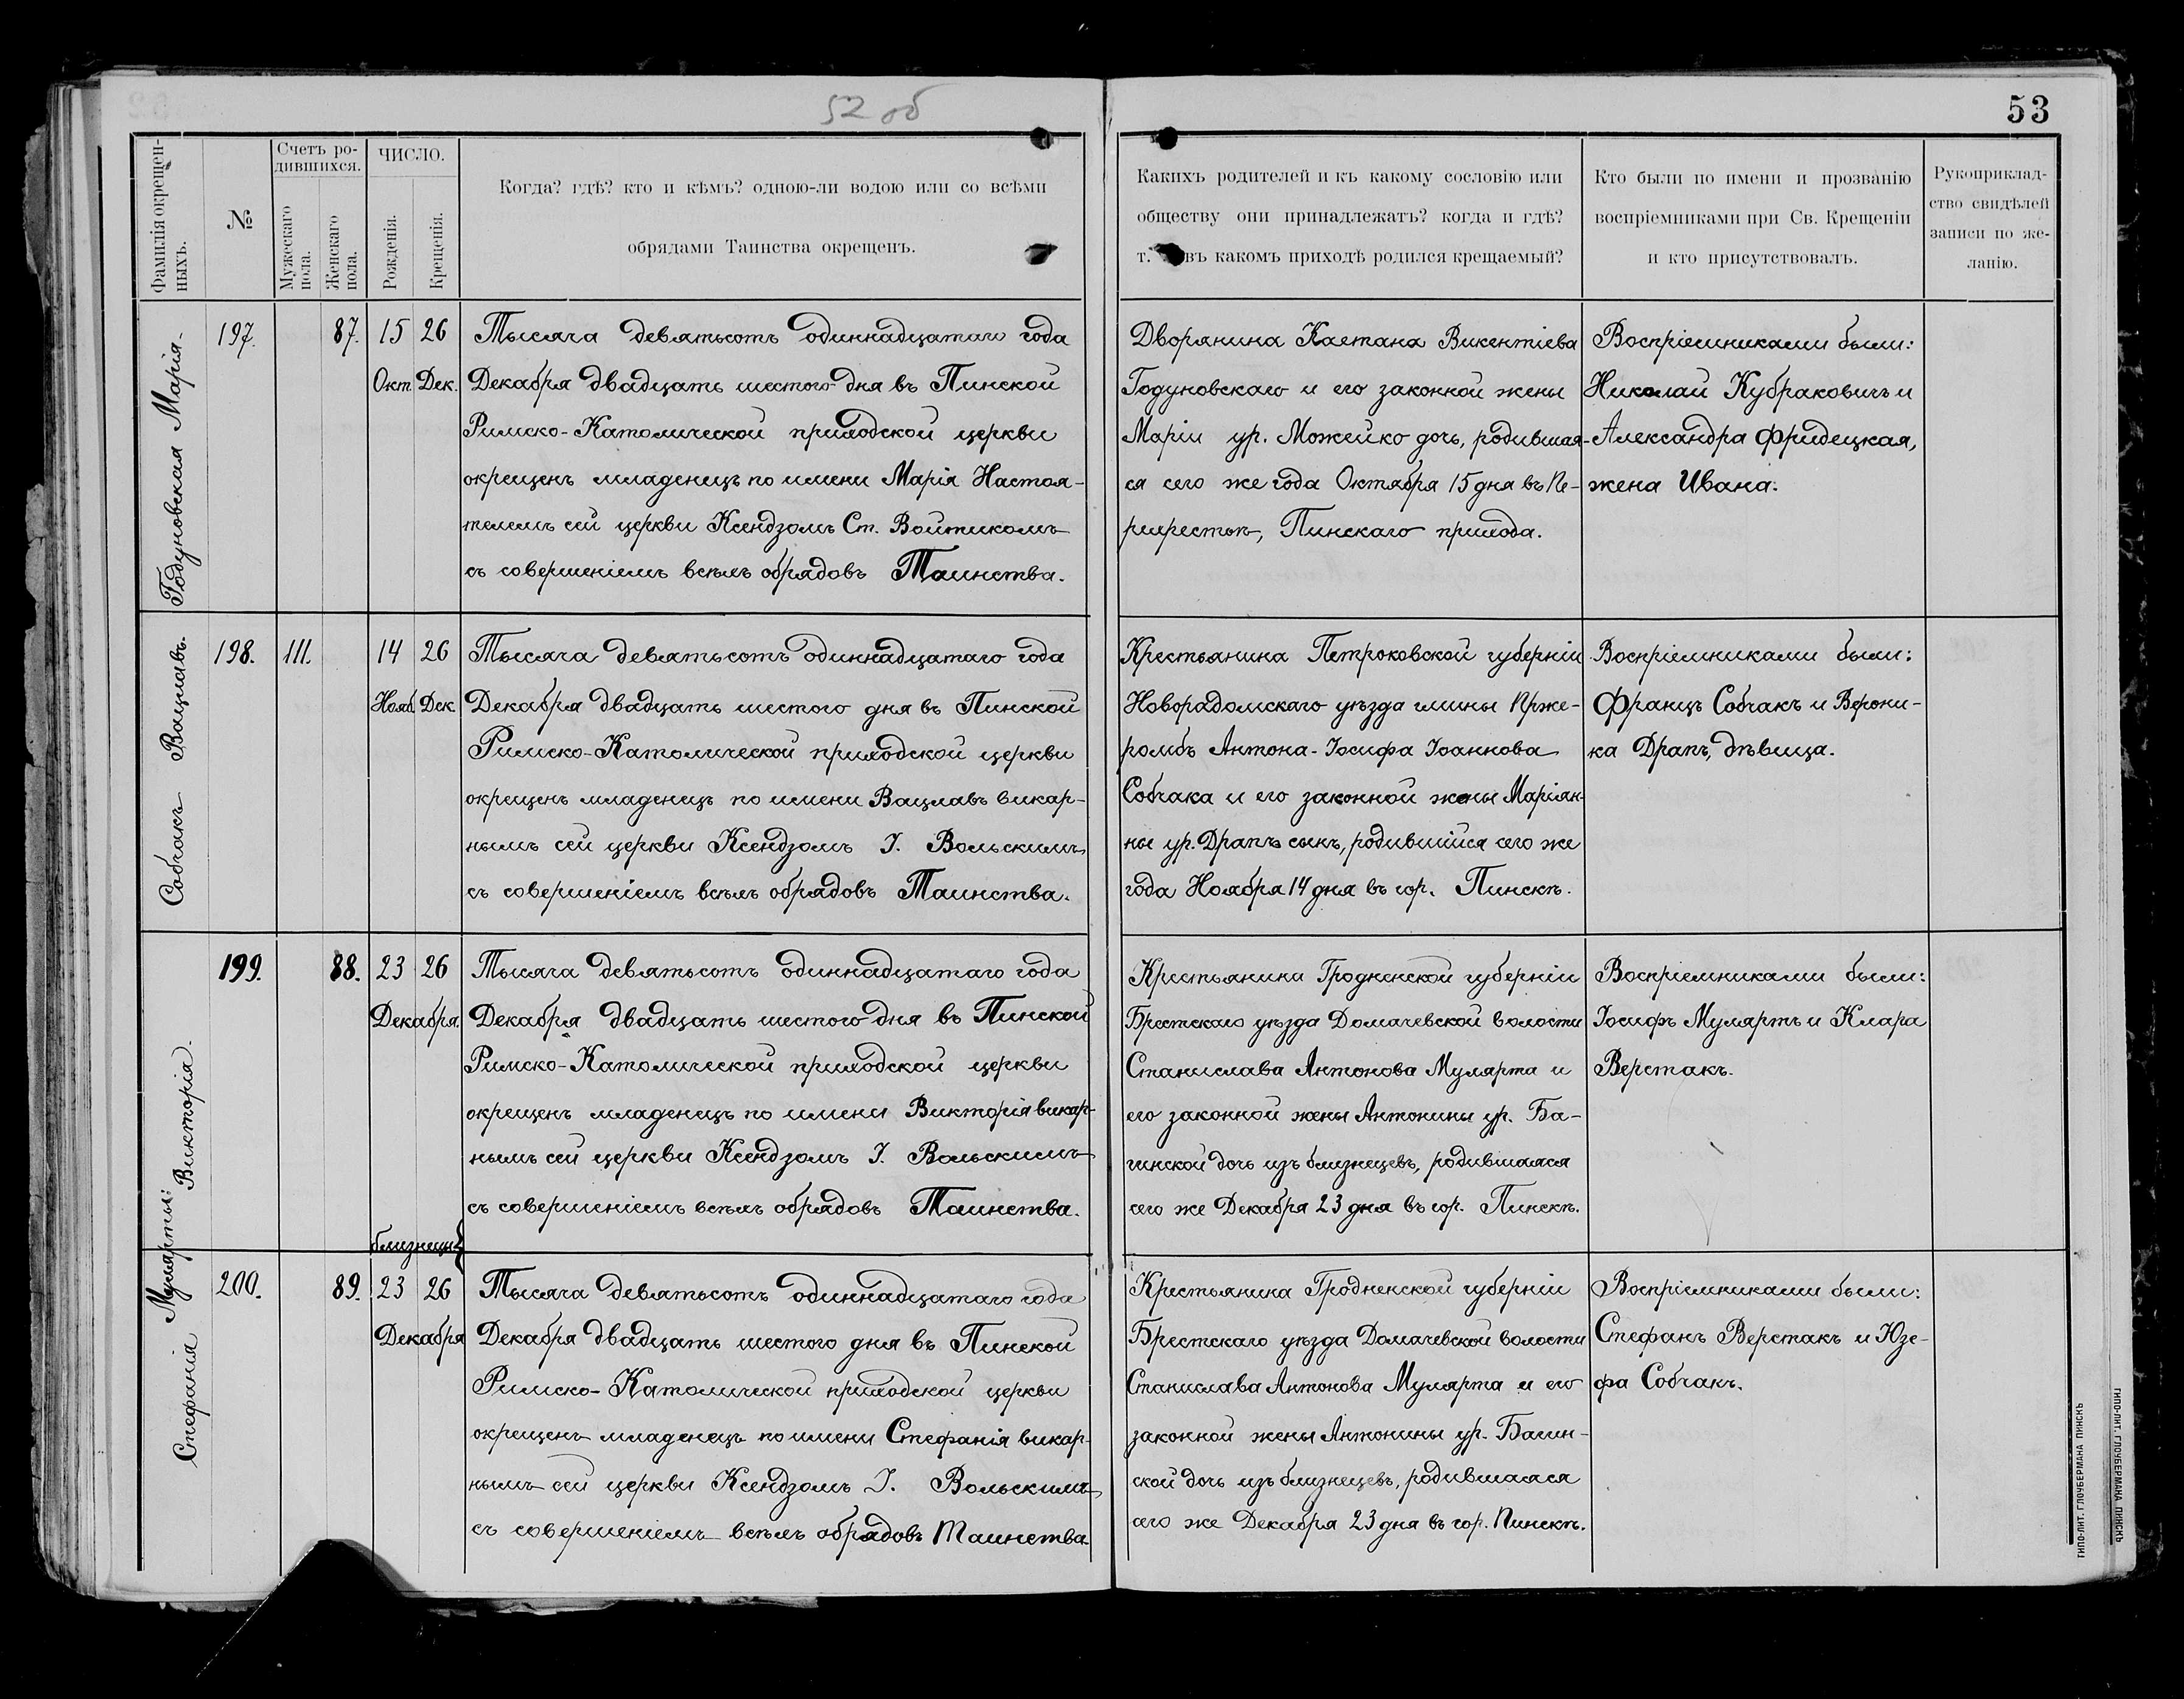 52 об
53
Фамилія окрещен-
ныхъ.
№
Счетъ ро-
дившихся.
Мужескаго
пола.
Женскаго
пола.
ЧИСЛО.
Рожденія.
Крещенія.
Когда? гдѣ? кто и кѣмъ? одною-ли водою или со всѣми
обрядами Таинства окрещенъ.
Какихъ родителей и къ какому сословію или
обществу они принадлежатъ? когда и гдѣ?
т. въ какомъ приходѣ родился крещаемый?
Кто были по имени и прозванію
воспріемниками при Св. Крещеніи
и кто присутствовалъ.
Рукоприклад-
ство свидѣлей
записи по же-
ланію.
Годуновская Марія.
197.
87.
15 26
Окт. Дек.
Тысяча девятьсотъ одиннадцатаго года
Декабря двадцать шестого дня въ Пинской
Римско-Католической приходской церкви
окрещенъ младенецъ по имени Марія Настоя-
телемъ сей церкви Ксендзомъ Ст. Войтикомъ
съ совершеніемъ всѣхъ обрядовъ Таинства.
Дворянина Каетана Викентіева
Годуновскаго и его законной жены
Маріи ур. Можейко дочь, родившая-
ся сего же года Октября 15 дня въ Пе-
рехрестьѣ, Пинскаго прихода.
Воспріемниками были:
Николай Кубраковичъ и
Александра Фридецкая,
жена Ивана.
Собчакъ Вацлавъ.
198.
111.
14 26
Нояб. Дек.
Тысяча девятьсотъ одиннадцатаго года
Декабря двадцать шестого дня въ Пинской
Римско-Католической приходской церкви
окрещенъ младенецъ по имени Вацлавъ викар-
нымъ сей церкви Ксендзомъ І. Вольскимъ
съ совершеніемъ всѣхъ обрядовъ Таинства.
Крестьянина Петроковской губерніи
Новорадомскаго уѣзда гмины Прже-
ромбъ Антона-Іосифа Іоаннова
Собчака и его законной жены Маріян-
ны ур. Драпъ сынъ, родившійся сего же
года Ноября 14 дня въ гор. Пинскѣ.
Воспріемниками были:
Францъ Собчакъ и Верони-
ка Драпъ, дѣвица.
Муляртъ:
Викторія.
199.
88.
23 26
Декабря.
Тысяча девятьсотъ одиннадцатаго года
Декабря двадцать шестого дня въ Пинской
Римско-Католической приходской церкви
окрещенъ младенецъ по имени Викторія викар-
нымъ сей церкви Ксендзомъ І. Вольскимъ
съ совершеніемъ всѣхъ обрядовъ Таинства.
Крестьянина Гродненской губерніи
Брестскаго уѣзда Домачевской волости
Станислава Антонова Мулярта и
его законной жены Антонины ур. Ба-
гинской дочь изъ близнецевъ, родившаяся
сего же Декабря 23 дня въ гор. Пинскѣ.
Воспріемниками были:
Іосифъ Муляртъ и Клара
Верстакъ.
близнецы
Стефанія
200.
89.
23 26
Декабря
Тысяча девятьсотъ одиннадцатаго года
Декабря двадцать шестого дня въ Пинской
Римско-Католической приходской церкви
окрещенъ младенецъ по имени Стефанія викар-
нымъ сей церкви Ксендзомъ І. Вольскимъ
съ совершеніемъ всѣхъ обрядовъ Таинства.
Крестьянина Гродненской губерніи
Брестскаго уѣзда Домачевской волости
Станислава Антонова Мулярта и его
законной жены Антонины ур. Багин-
ской дочь изъ близнецевъ, родившаяся
сего же Декабря 23 дня въ гор. Пинскѣ.
Воспріемниками были:
Стефанъ Верстакъ и Юзе-
фа Собчакъ.
ТИПО-ЛИТ. ГЛОУБЕРМАНА ПИНСКЪ
ТИПО-ЛИТ. ГЛОУБЕРМАНА ПИНСКЪ